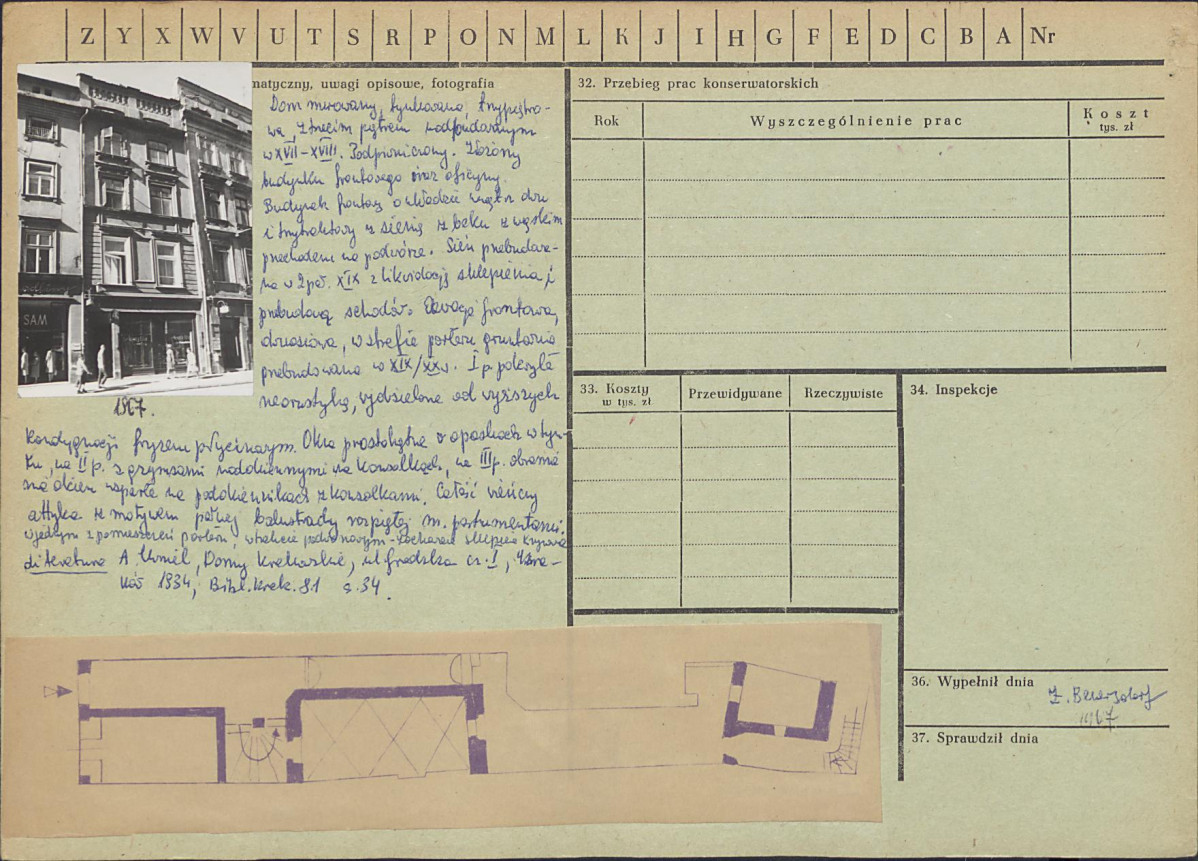 Z Y X W V U T S R P O N M L K J I H G F E D C B A Nr
matyczny, uwagi opisowe, fotografia
Dom murowany, tynkowany, trzypiętro-
wy, z trzecim piętrem nadbudowanym
w XVII-XVIII. Podpiwniczony. Złożony
budynku frontowego oraz oficyny.
Budynek frontowy o układzie wnętrz dwu
i trzytraktowy z sienią z boku z wąskim
przechodem na podwórze. Sień przebudowa-
na w 2 poł. XIX z likwidacją sklepienia i
przebudową schodów. Elewacja frontowa,
dwuosiowa, w strefie parteru gruntownie
przebudowana w XIX/XX w. I p. pokryte
neorustyką, wydzielone od wyższych
SAM
1967.
kondygnacji fryzem plycinowym. Okna prostokątne o opaskach w tyn-
ku, na II p. z gzymsami nadokiennymi na konsolkach, na III p. obramie
nia okien wsparte na podokiennikach z konsolkami. Całość wieńczy
attyka z motywem pełnej balustrady rozpiętej m. postumentami.
W jednym z pomieszczeń parteru, w trakcie podwórzowym - zachowane sklepienie krzyżowe
Literatura A. Chmiel, Domy krakowskie, ul. Grodzka cz. I, Kra-
ków 1934, Bibl. Krak. 81 s. 34.
32. Przebieg prac konserwatorskich
Rok Wyszczególnienie prac Koszt
tys. zł
33. Koszty Przewidywane Rzeczywiste
w tys. zł
34. Inspekcje
36. Wypełnił dnia
Z. Beiersdorf
67
37. Sprawdził dnia